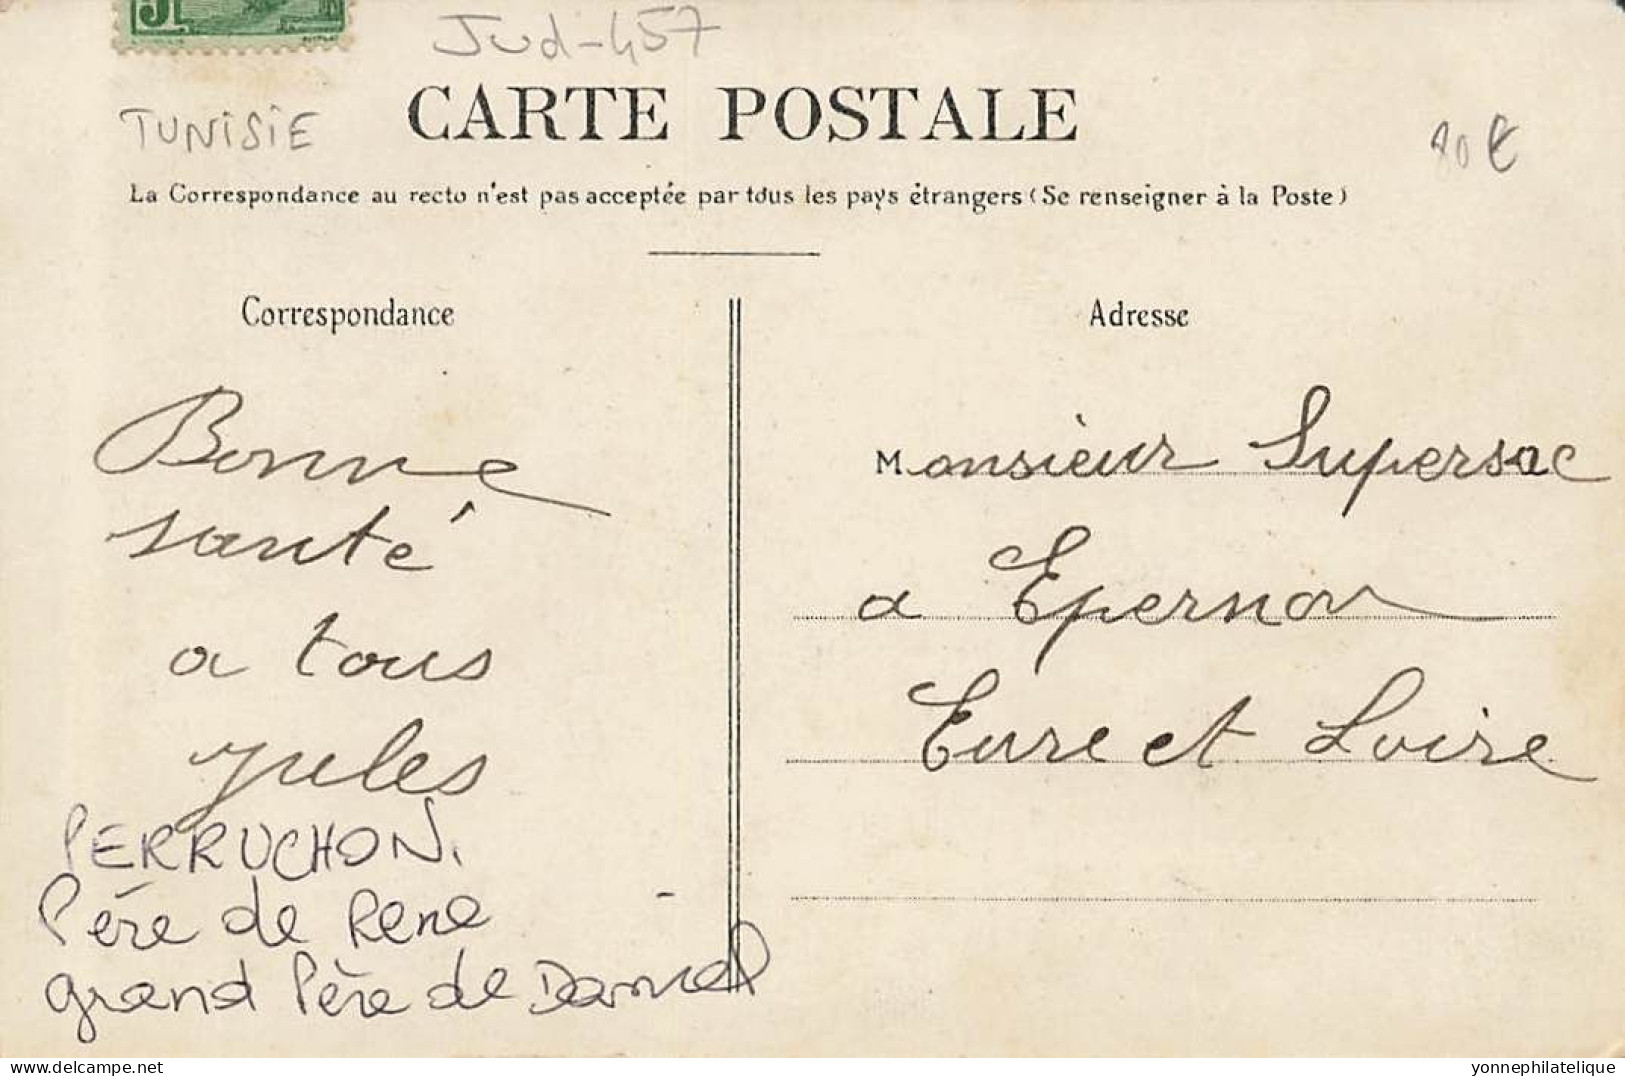 5
Jud-457
CARTE POSTALE
TUNISIE
80€
La Correspondance au recto n'est pas acceptée par tous les pays étrangers (Se renseigner à la Poste)
Correspondance
Bonne
santé
a tous
jules
PERRUCHON.
Père de Rene
grand Père de Daniel
Adresse
Monsieur Supersac
a Epernon
Eure et Loire
delcampe.net
yonnephilatelique